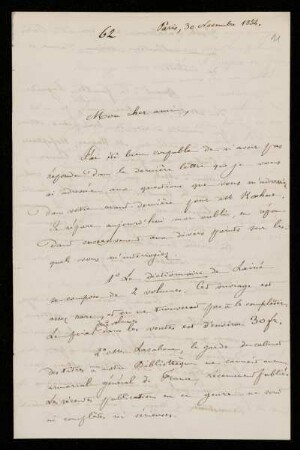 62
Paris, 30 Novembre 1854.
Mon cher ami,
J'ai été bien coupable de n'avoir pas
répondu dans la dernière lettre que je vous
ai aux questions que vous m'adressiez
dans votre avant dernière pour Mr
Je répare aujourd'hui mon oubli, en répon
dant aux divers points sur les
quels vous m'interrogiez.
1° Le Dictionnaire de Lainé
se compose de 2 volumes. Cet ouvrage est
assez rare, et on trouverait pas à le compléter.
Le prix dans les ventes est d'environ 30 f.
2° Mr Lacabane, le guide du cabinet
des titres à notre Bibliothèque ne connait aucun
armorial général de France, récemment publié.
Les récentes publications en ce genre, ne sont
ni complètes ni sérieuses.